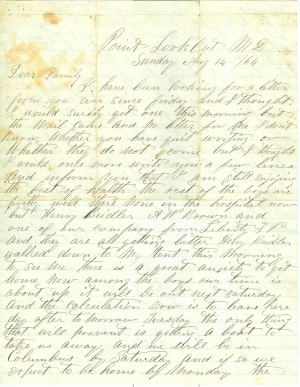 Point Look Out MD
Sunday Aug 14 /64
Dear Family
I have been looking for a letter
from you ever since friday and I thought
I would surely get one this morning but
the mail came and no letter for me I don't
know whether you have quit writing or
whether they do not come but I thought
I would once more write you a few lines
and inform you that I am still enjoying
the best of health the rest of the boys are
well there none in the hospital now
but Henry Reidler A W Brown and
one of our company from Liberty T P
and they are all getting better Heny Reidler
walked down to my tent this morning
to see me there is a great anxiety to get
home now among the boys our time is
about up it will be out next Saturday
and the calculation now is to leave here
day after to morrow tuesday the only thing
that will prevent is getting a boat to
take us away and we will be in
Columbus by Saturday and if so we
expect to be home by Monday the